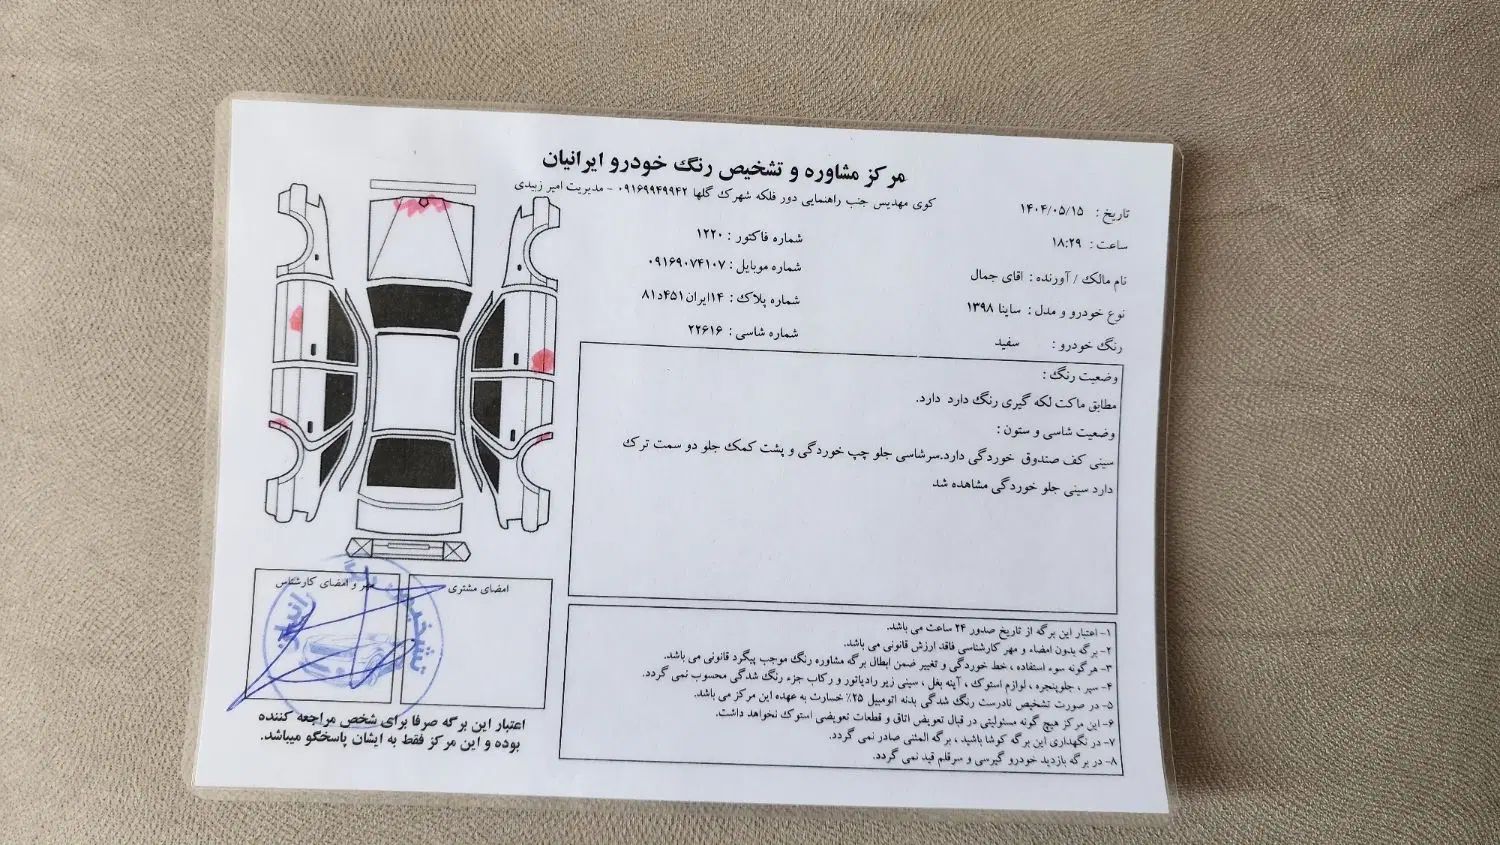 مرکز مشاوره و تشخیص رنگ خودرو ایرانیان
کوی مهدیس جنب راهنمایی دور فلکه شهرک گلها ۰۹۱۶۹۹۴۹۹۴۲ - مدیریت امیر زبیدی
تاریخ : ۱۴۰۴/۰۵/۱۵
ساعت : ۱۸:۲۹
شماره فاکتور : ۱۲۲۰
نام مالک / آورنده : اقای جمال
شماره موبایل : ۰۹۱۶۹۰۷۴۱۰۷
نوع خودرو و مدل : ساینا ۱۳۹۸
شماره پلاک : ۱۴ایران۴۵۱د۸۱
رنگ خودرو : سفید
شماره شاسی : ۲۲۶۱۶
وضعیت رنگ :
مطابق ماکت لکه گیری رنگ دارد دارد.
وضعیت شاسی و ستون :
سینی کف صندوق خوردگی دارد.سرشاسی جلو چپ خوردگی و پشت کمک جلو دو سمت ترک
دارد سینی جلو خوردگی مشاهده شد
امضای مشتری
مهر و امضای کارشناس
اعتبار این برگه صرفا برای شخص مراجعه کننده
بوده و این مرکز فقط به ایشان پاسخگو میباشد.
۱- اعتبار این برگه از تاریخ صدور ۲۴ ساعت می باشد.
۲- برگه بدون امضاء و مهر کارشناسی فاقد ارزش قانونی می باشد.
۳- هرگونه سوء استفاده ، خط خوردگی و تغییر ضمن ابطال برگه مشاوره رنگ موجب پیگرد قانونی می باشد.
۴- سپر ، جلوپنجره ، لوازم استوک ، آینه بغل ، سینی زیر رادیاتور و رکاب جزء رنگ شدگی محسوب نمی گردد.
۵- در صورت تشخیص نادرست رنگ شدگی بدنه اتومبیل ۲۵٪ خسارت به عهده این مرکز می باشد.
۶- این مرکز هیچ گونه مسئولیتی در قبال تعویض اتاق و قطعات تعویضی استوک نخواهد داشت.
۷- در نگهداری این برگه کوشا باشید ، برگه المثنی صادر نمی گردد.
۸- در برگه بازدید خودرو گیرسی و سرقلم قید نمی گردد.